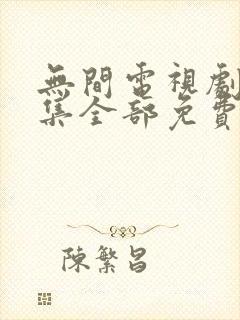 無間電視劇
集全部免費
陳繁昌